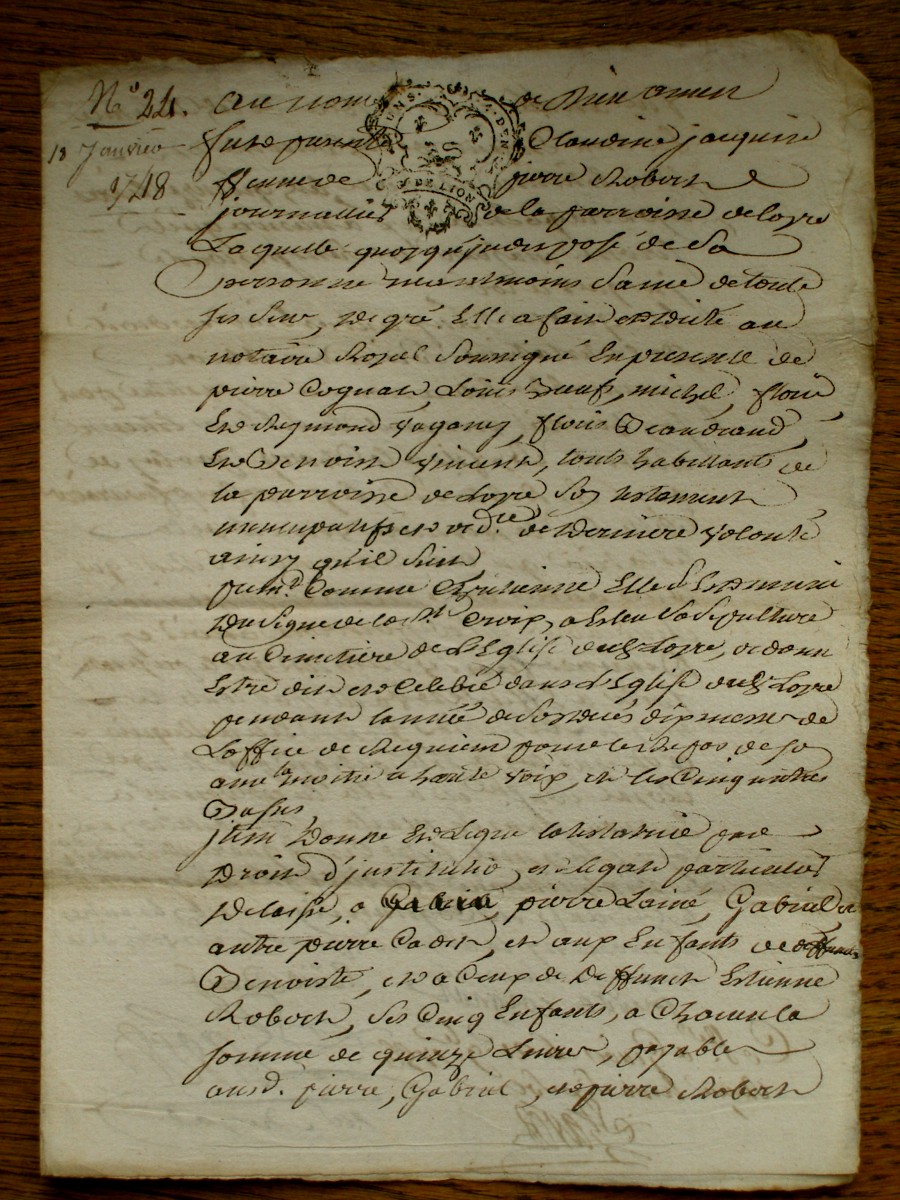 N° 24. au nom de Dieu amen
18 Janvier
1748
fut presente Claudine jacquier
ffemme de pierre Robert
journallier de la parroisse de loyre
DEN
DE LION
Laquelle quoyqu'jndisposé de sa
personne neantmoins saine de touts
ses sens, de gré Elle a fait et dicté au
notaire Royal soussigné En presence de
pierre Coquat, Louis, michel
Et Reymond, 
Et Benoist vincent, touts habittants de
la parroisse de Loyre son testament
nuncupatif et ord.ce de Derniere volonté
ainsy qu'il suit
prem.t Comme Chretienne Elle s'Est munie
Du signe de la s.te Croix, a Esleu sa sepulture
au Cimitiere de l'Eglise dud. Loyre, veut
Estre dit et Celebré dans l'Eglise dud. Loyre
pendant l'année de son deces dix messes de
L'office de Requiem pour le Repos de son
ame la moitié a haute voix, et les Cinq autres
Basses
jtem Donne Et Legue la testatrice par
Droit d'jnstitution, et legat particulier
Delaisse, a pierre L'ainé, Gabriel et
autre pierre Cadet, et aux Enfants de deffunte
Benoiste, et a Ceux de Deffunct Estienne
Robert, ses Cinq Enfants, a Chacun la
somme de quinze Livres, payable
ausd. pierre, Gabriel, et pierre Robert